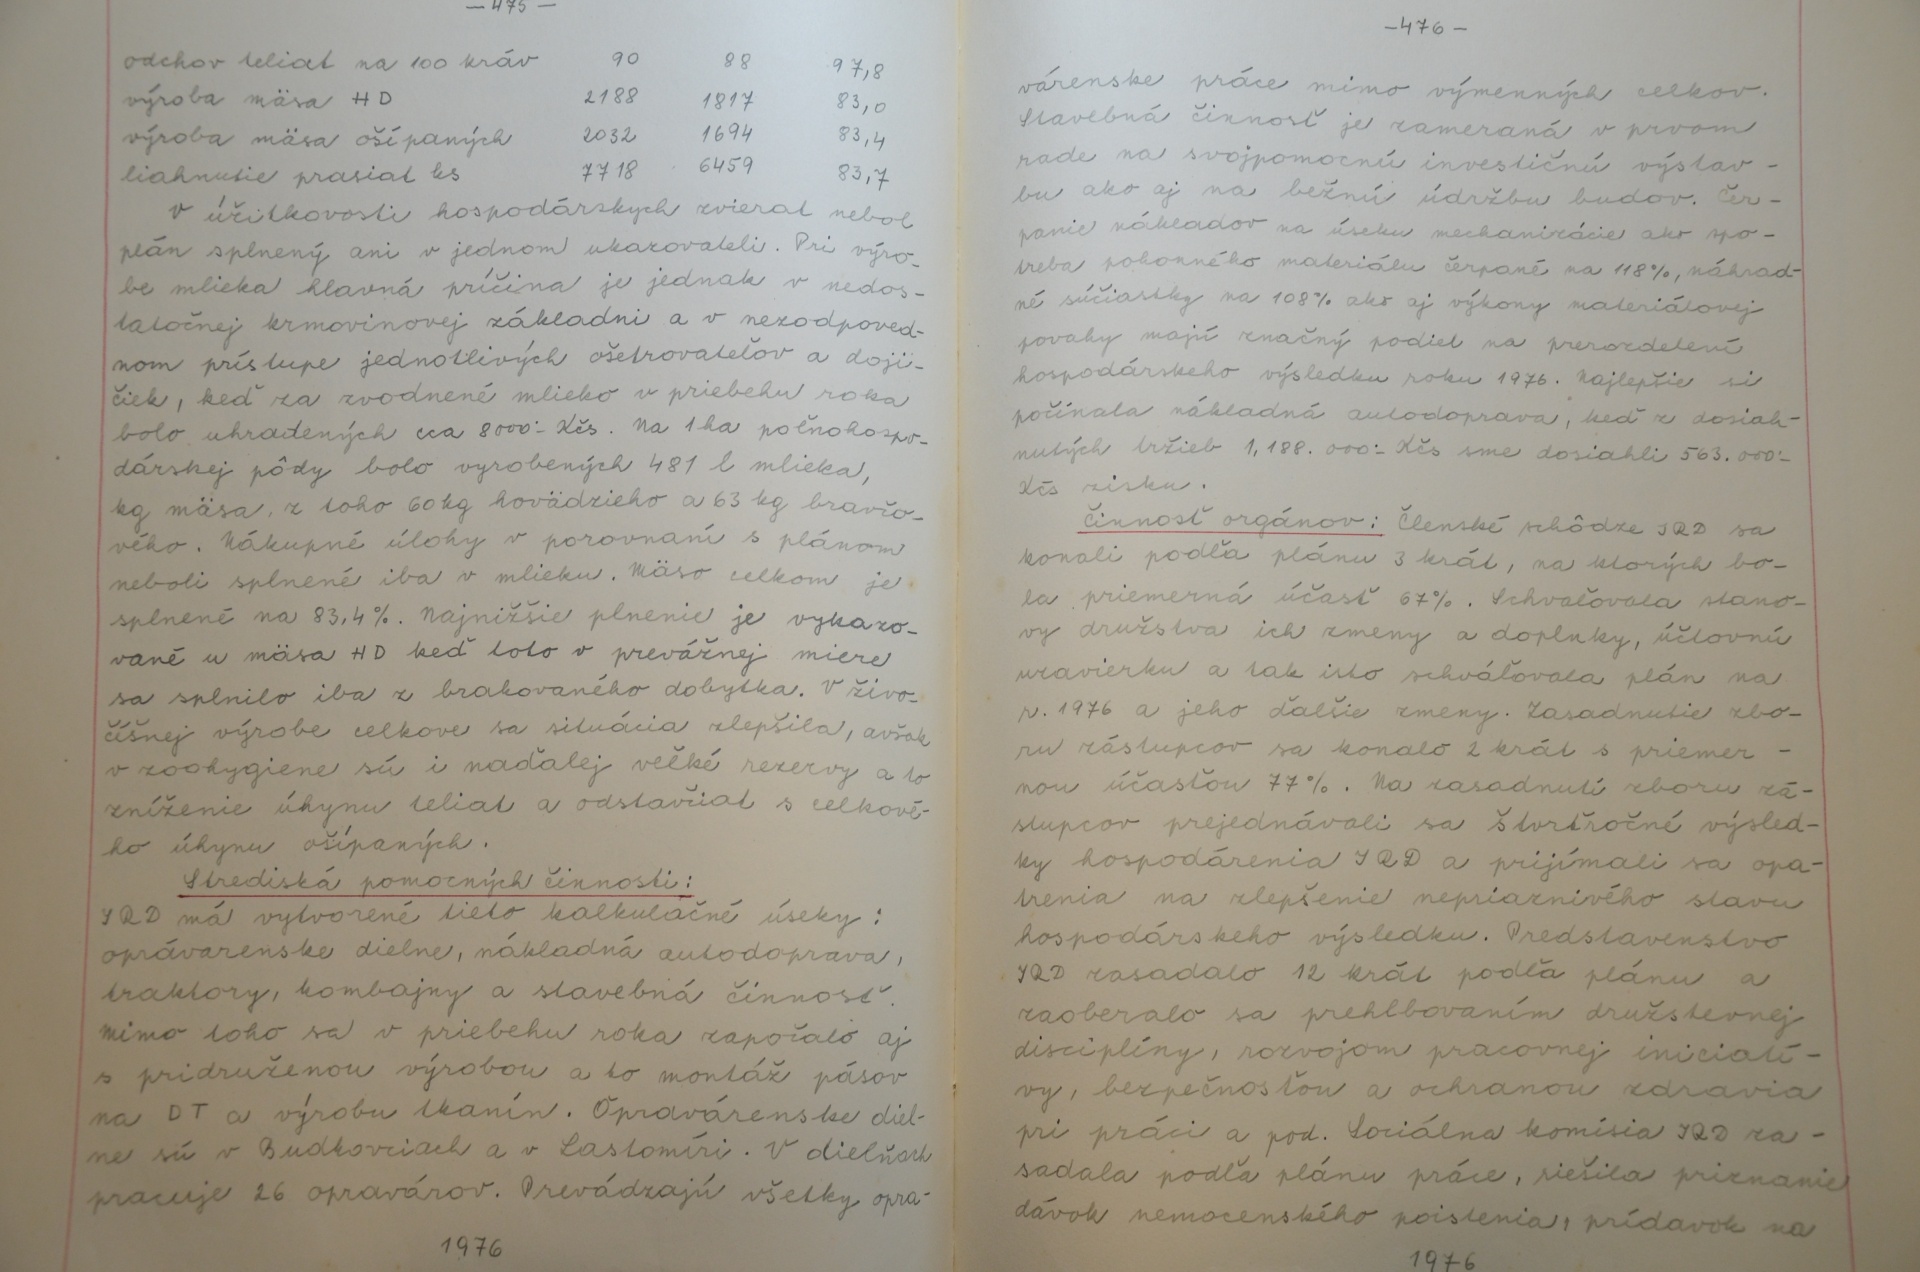 — 475 —
odchov teliat na 100 kráv 90 88 97,8
výroba mäsa HD 2188 1817 83,0
výroba mäsa ošípaných 2032 1694 83,4
liahnutie prasiat ks 7718 6459 83,7
V úžitkovosti hospodárskych zvierat nebol
plán splnený ani v jednom ukazovateli. Pri výro-
be mlieka hlavná príčina je jednak v nedos-
tatočnej krmovinovej základni a v nezodpoved-
nom prístupe jednotlivých ošetrovateľov a doji-
čiek, keď za zvodnené mlieko v priebehu roka
bolo uhradených cca 8000.- Kčs. Na 1 ha poľnohospo-
dárskej pôdy bolo vyrobených 481 l mlieka,
kg mäsa, z toho 60 kg hovädzieho a 63 kg bravčo-
vého. Nákupné úlohy v porovnaní s plánom
neboli splnené iba v mlieku. Mäso celkom je
splnené na 83,4%. Najnižšie plnenie je vykazo-
vané u mäsa HD keď toto v prevážnej miere
sa splnilo iba z brakovaného dobytka. V živo-
číšnej výrobe celkove sa situácia zlepšila, avšak
v zoohygiene sú i naďalej veľké rezervy a to
zníženie úhynu teliat a odstavčiat s celkové-
ho úhynu ošípaných.
Strediská pomocných činností:
JRD má vytvorené tieto kalkulačné úseky:
oprávarenske dielne, nákladná autodoprava,
traktory, kombajny a stavebná činnosť.
Mimo toho sa v priebehu roka započalo aj
s pridruženou výrobou a to montáž pásov
na DT a výrobu tkanín. Opravárenske diel-
ne sú v Budkovciach a v Lastomíri. V dielňach
pracuje 26 opravárov. Prevádzajú všetky opra-
1976
— 476 —
várenske práce mimo výmenných celkov.
Stavebná činnosť je zameraná v prvom
rade na svojpomocnú investičnú výstav-
bu ako aj na bežnú údržbu budov. Čer-
panie nákladov na úseku mechanizácie ako spo-
treba pohonného materiálu čerpané na 118%, náhrad-
né súčiastky na 108% ako aj výkony materiálovej
povahy majú značný podiel na prerozdelení
hospodárskeho výsledku roku 1976. Najlepšie si
počínala nákladná autodoprava, keď z dosiah-
nutých tržieb 1,188.000.- Kčs sme dosiahli 563.000.-
Kčs zisku.
Činnosť orgánov: Členské schôdze JRD sa
konali podľa plánu 3 krát, na ktorých bo-
la priemerná účasť 67%. Schvaľovala stano-
vy družstva ich zmeny a doplnky, účtovnú
uzavierku a tak isto schváľovala plán na
r. 1976 a jeho ďalšie zmeny. Zasadnutie zbo-
ru zástupcov sa konalo 2 krát s priemer-
nou účasťou 77%. Na zasadnutí zboru zá-
stupcov prejednávali sa štvrťročné výsled-
ky hospodárenia JRD a prijímali sa opa-
trenia na zlepšenie nepriaznivého stavu
hospodárskeho výsledku. Predstavenstvo
JRD zasadalo 12 krát podľa plánu a
zaoberalo sa prehlbovaním družstevnej
disciplíny, rozvojom pracovnej iniciatí-
vy, bezpečnosťou a ochranou zdravia
pri práci a pod. Sociálna komisia JRD za-
sadala podľa plánu práce, riešila priznanie
dávok nemocenského poistenia, prídavok na
1976